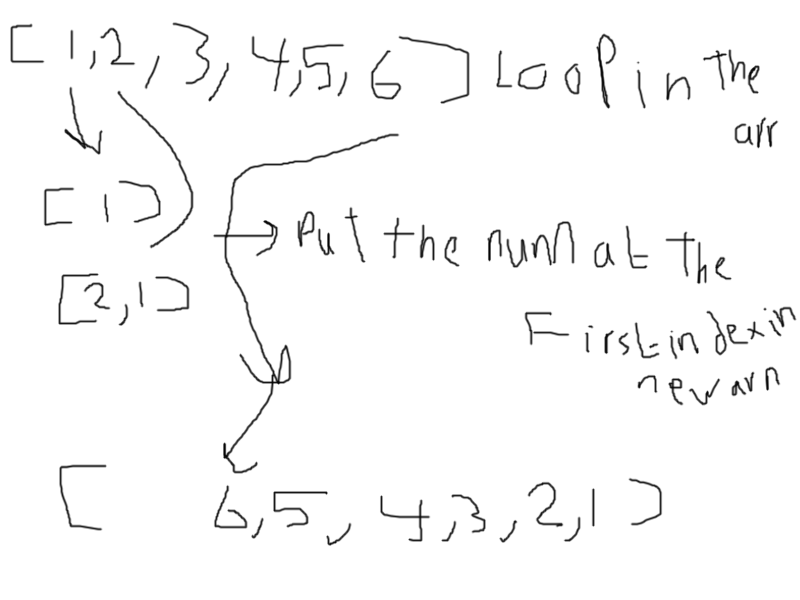 [1,2,3,4,5,6] Loop in the
arr
[1]
→ Put the num at the
[2,1]
First index in
new arr
[ 6,5,, 4,3,2,1]